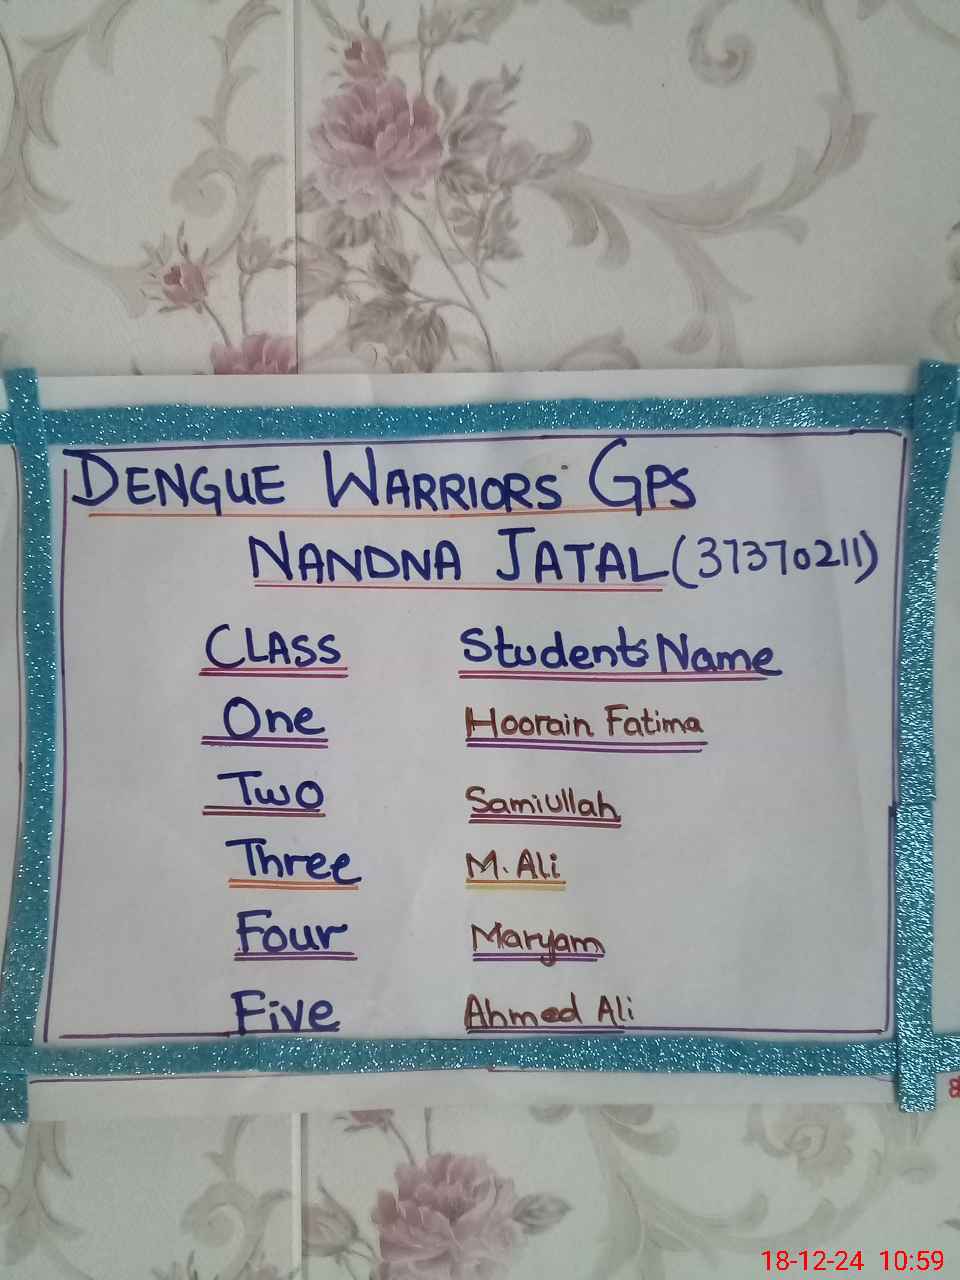 DENGUE WARRIORS GPS
NANDNA JATAL (37370211)
CLASS Students Name
One Hoorain Fatima
Two Samiullah
Three M. Ali
Four Maryam
Five Ahmed Ali
18-12-24 10:59